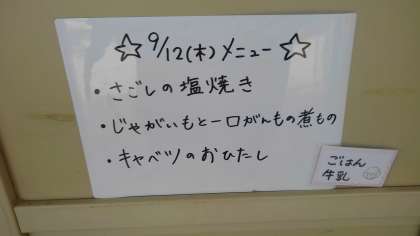 ☆9/12(木)メニュー☆
・さごしの塩焼き
・じゃがいもと一口がんもの煮もの
・キャベツのおひたし
ごはん
牛乳